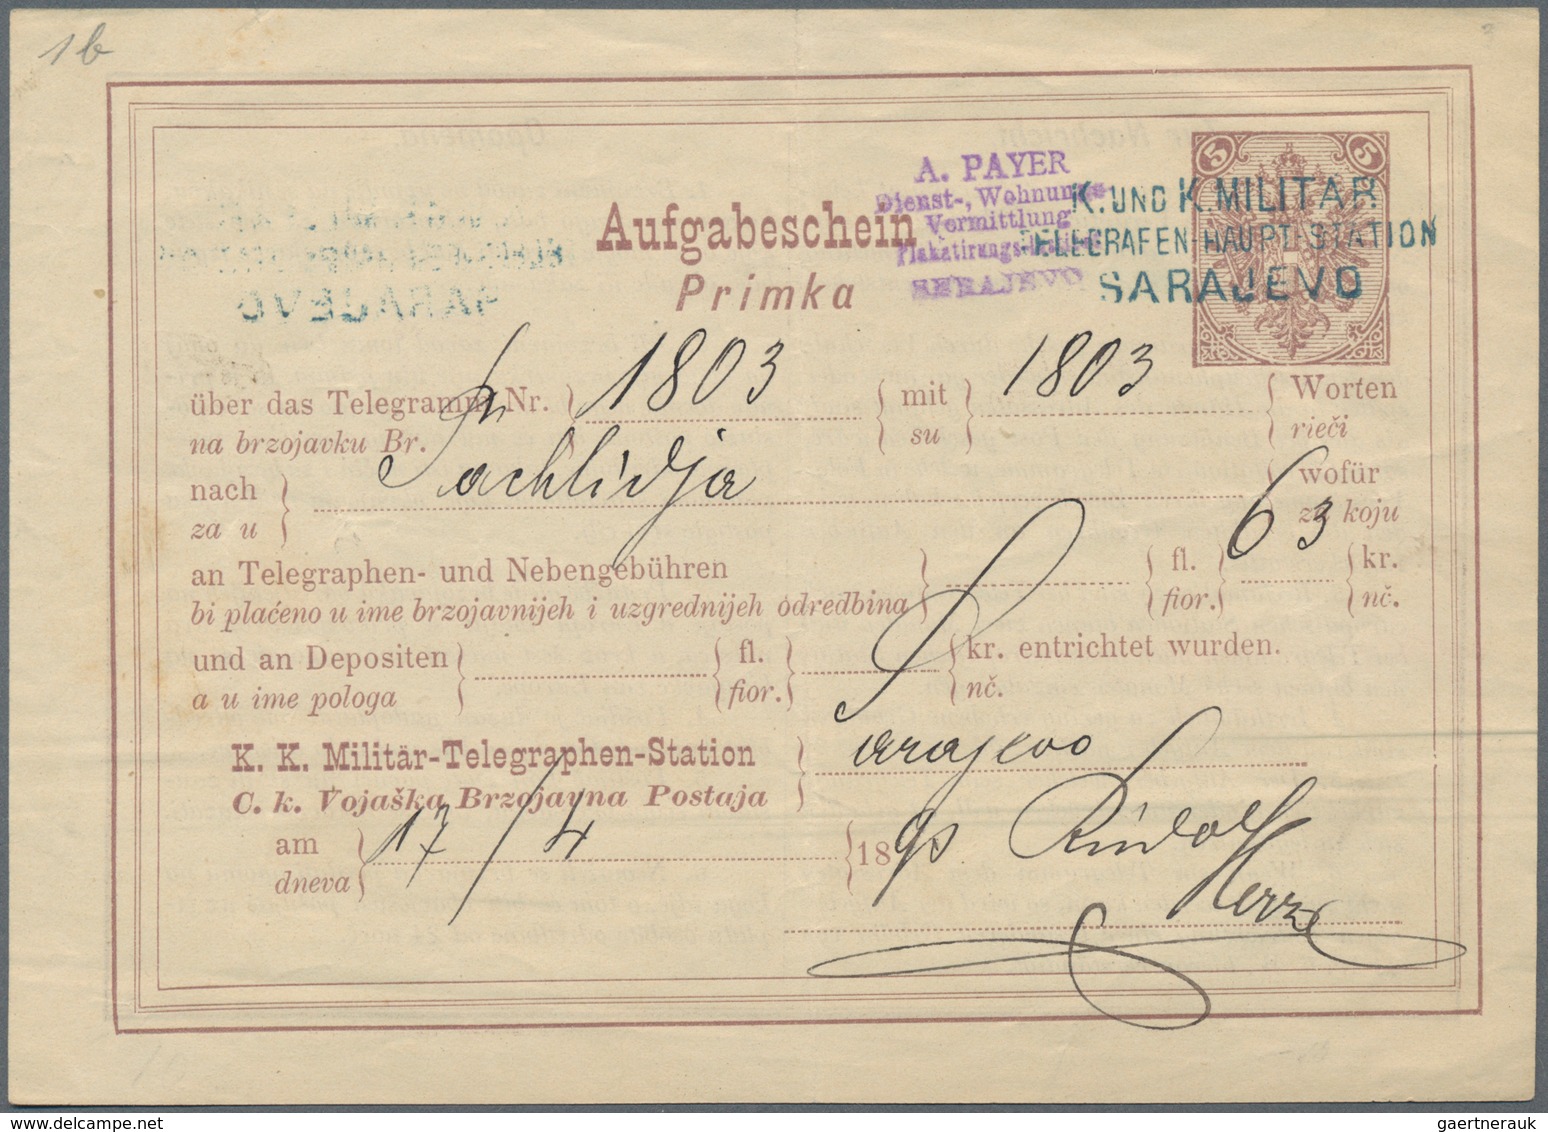 1b
5 5
A. PAYER
Dienst-, Wohnungs-
Vermittlung
SERAJEVO
K. UND K. MILITAR
TELEGRAFEN-HAUPT-STATION
SARAJEVO
Aufgabeschein
Primka
über das Telegramm Nr. 1803 mit 1803 Worten
na brzojavku Br. su rieči
nach wofür
za u za koju
63
an Telegraphen- und Nebengebühren fl. kr.
bi plaćeno u ime brzojavnijeh i uzgrednijeh odredbina fior. nč.
und an Depositen fl. kr. entrichtet wurden.
a u ime pologa fior. nč.
K. K. Militär-Telegraphen-Station Sarajevo
C. k. Vojaška Brzojavna Postaja
am 17/4 18
dneva
Rudolf
gaertnerauk